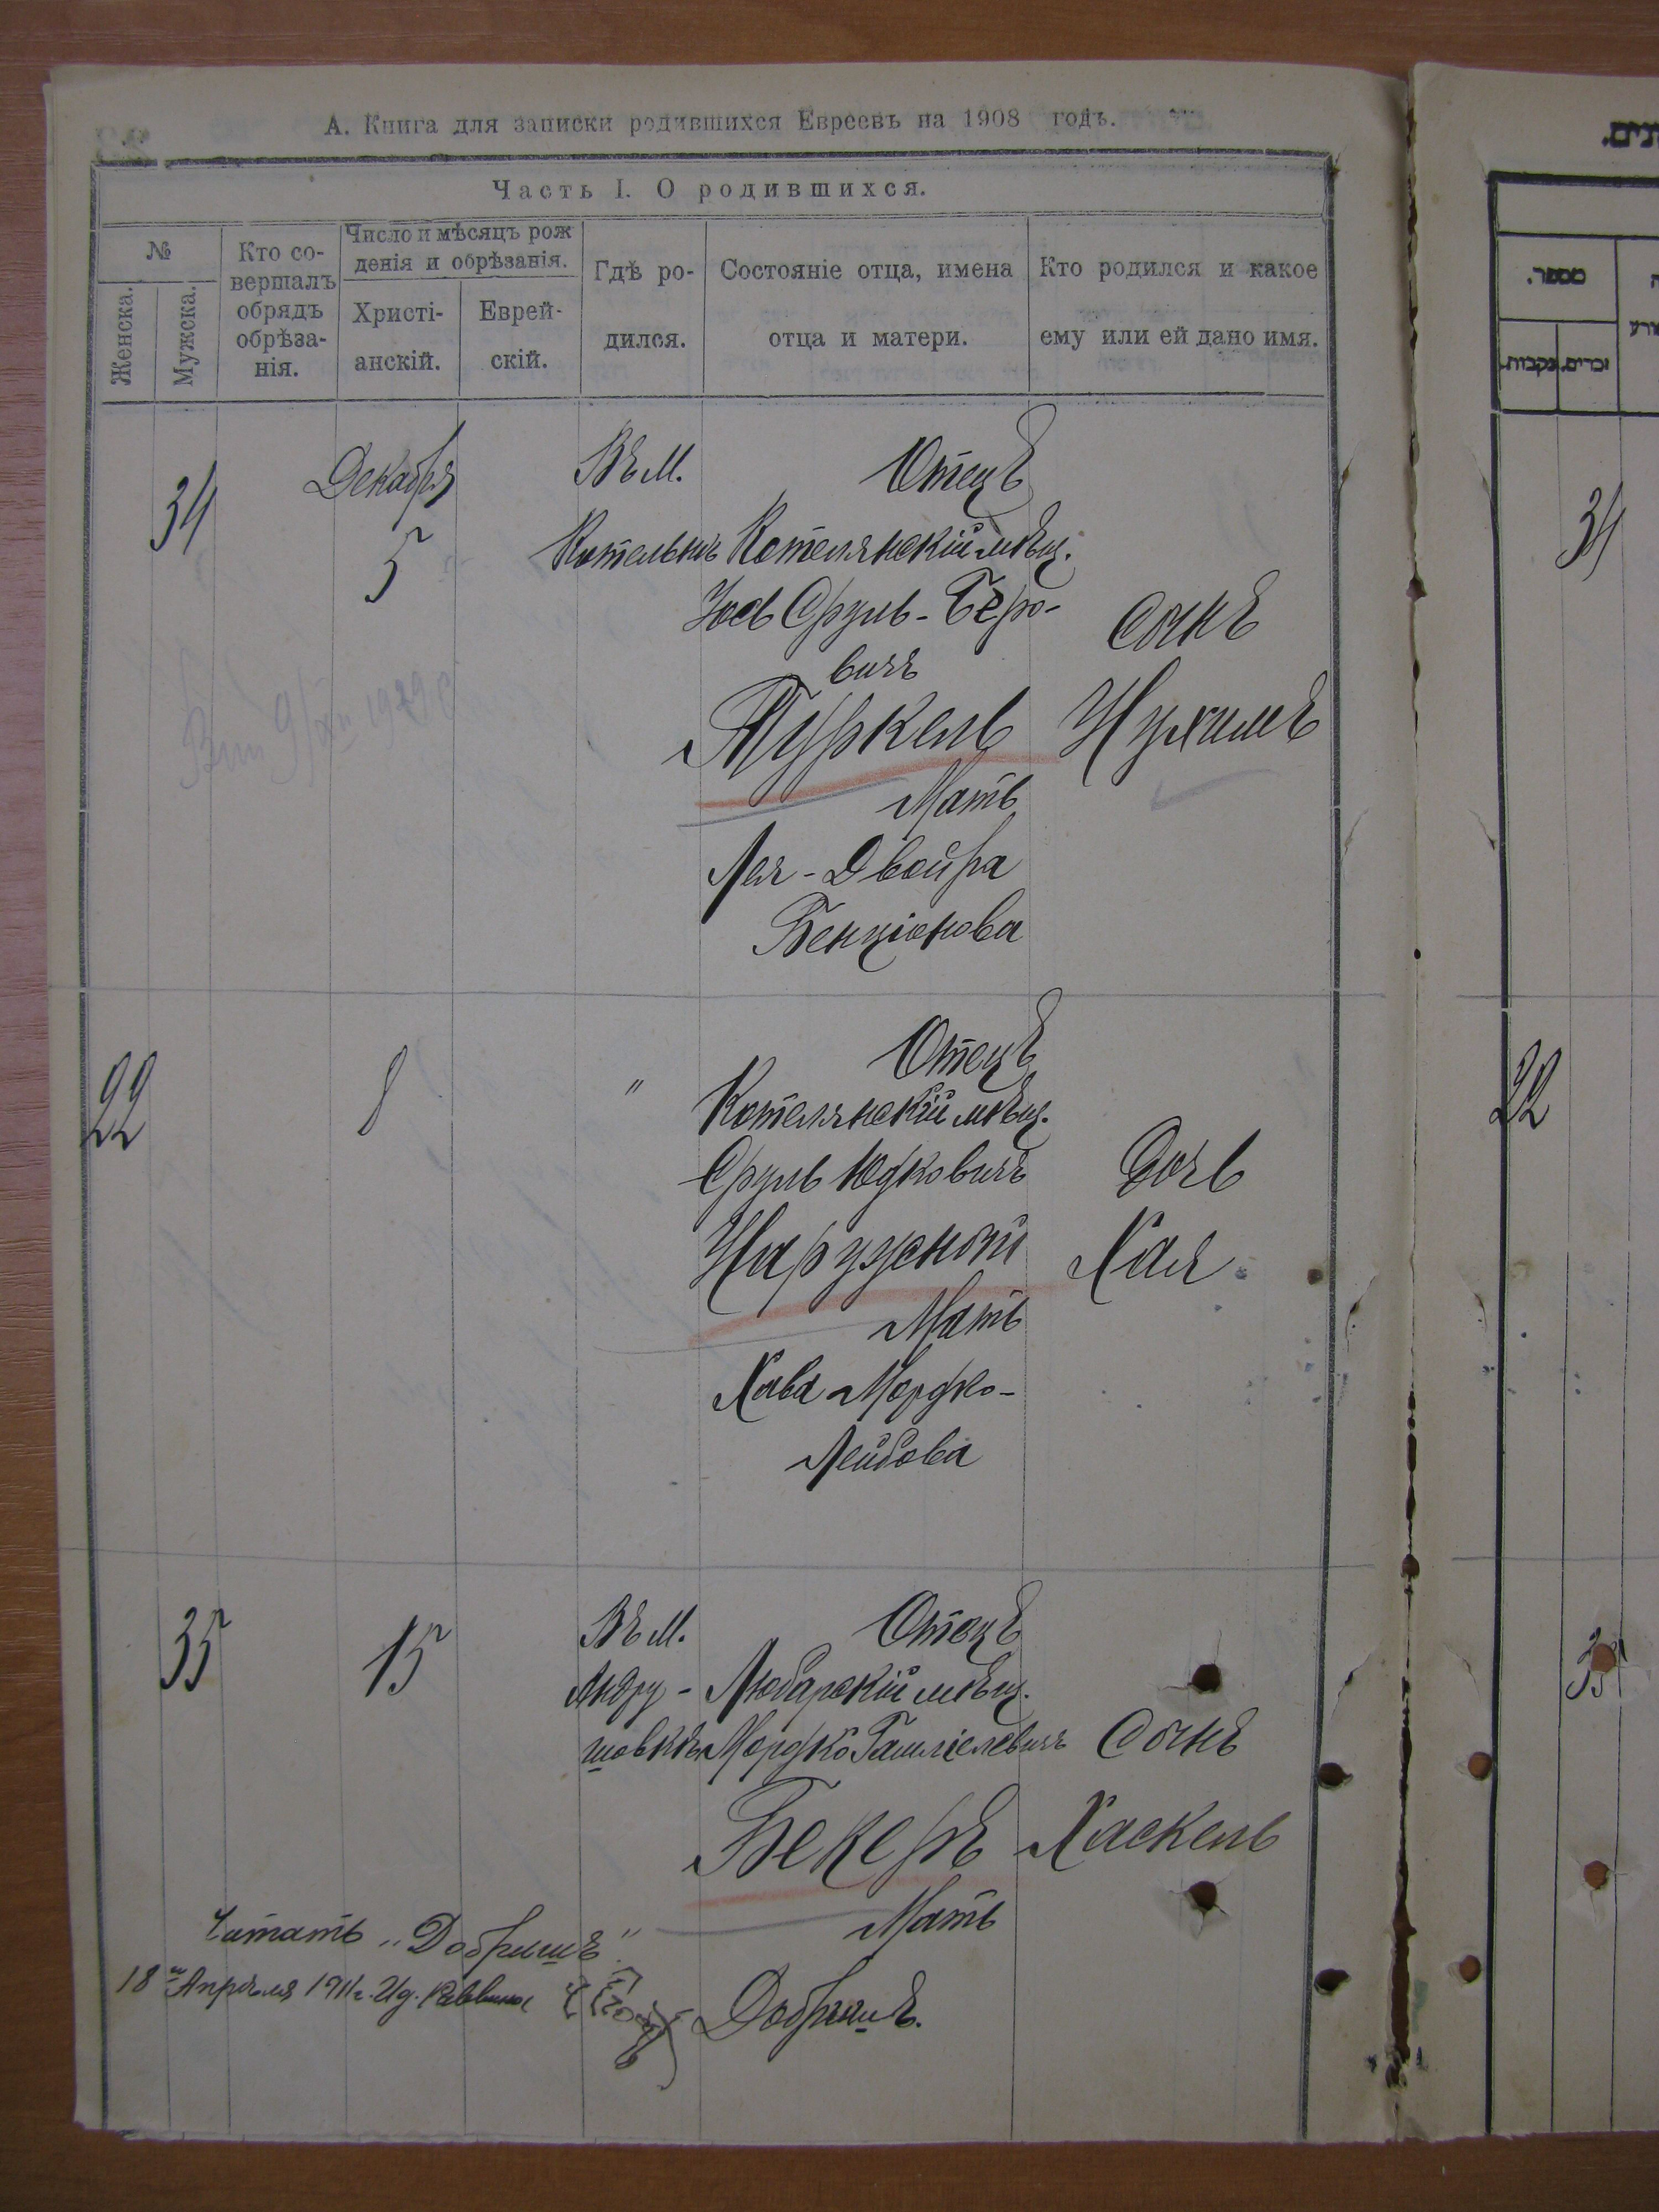 А. Книга для записки родившихся Евреевъ на 1908 годъ.
Часть I. О родившихся.
№
Женска.
Мужска.
Кто со-
вершалъ
обрядъ
обрѣза-
нія.
Число и мѣсяцъ рож
денія и обрѣзанія.
Христі-
анскій.
Еврей-
скій.
Гдѣ ро-
дился.
Состояніе отца, имена
отца и матери.
Кто родился и какое
ему или ей дано имя.
34
Декабря
5
Въ М.
Котельнѣ
Отецъ
Котелянскій мѣщ.
Іось Сруль-Беро-
вичъ
Туркель
Мать
Лея-Двойра
Бенціонова
Сынъ
Нухимъ
22
8
"
Отецъ
Котелянскій мѣщ.
Сруль Юдковичъ
Мать
Хава Мордко-
Лейбова
Дочь
Хая
35
15
Въ М.
Андру-
шовкѣ
Отецъ
Любарскій мѣщ.
Мордко Гамшіелевичъ
Бекеръ
Мать
Добришъ.
Сынъ
Хаскель
Читать „Добришъ".
18 Апрѣля 1911 г. Ид. Раввина
מספר.
זכרים.
נקבות.
34
22
35